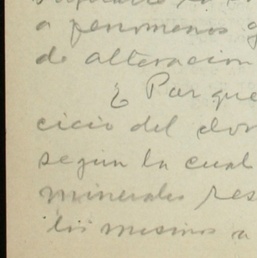 a fenomenos
de alteracion
¿ Por que
cicio del
segun la cual
minerales res
los mismos a